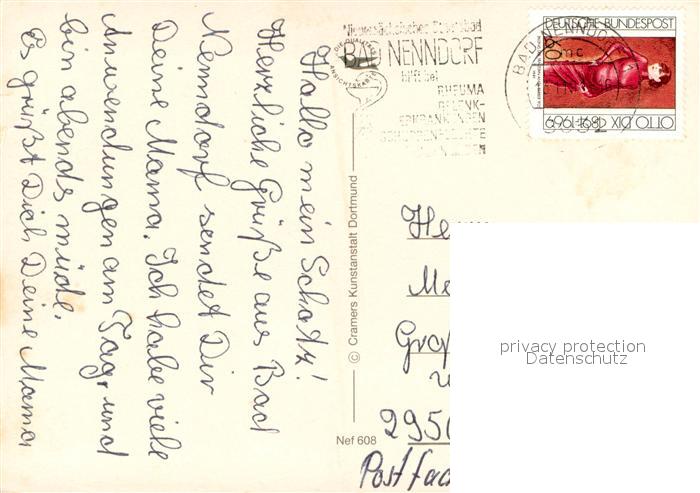 Hallo mein Schatz!
Herzliche Grüße aus Bad
Nenndorf sendet Dir
Deine Mama. Ich habe viele
Anwendungen am Tag, und
bin abends müde.
Es grüßt Dich Deine Mama
© Cramers Kunstanstalt Dortmund
Nef 608
Niedersächsisches Staatsbad
BAD NENNDORF
hilft bei
RHEUMA
GELENK-
ERKRANKUNGEN
BAD NENNDORF
DEUTSCHE BUNDESPOST
60
OTTO DIX 1891-1969
He
Me
Gro
295
Postfac
privacy protection
Datenschutz